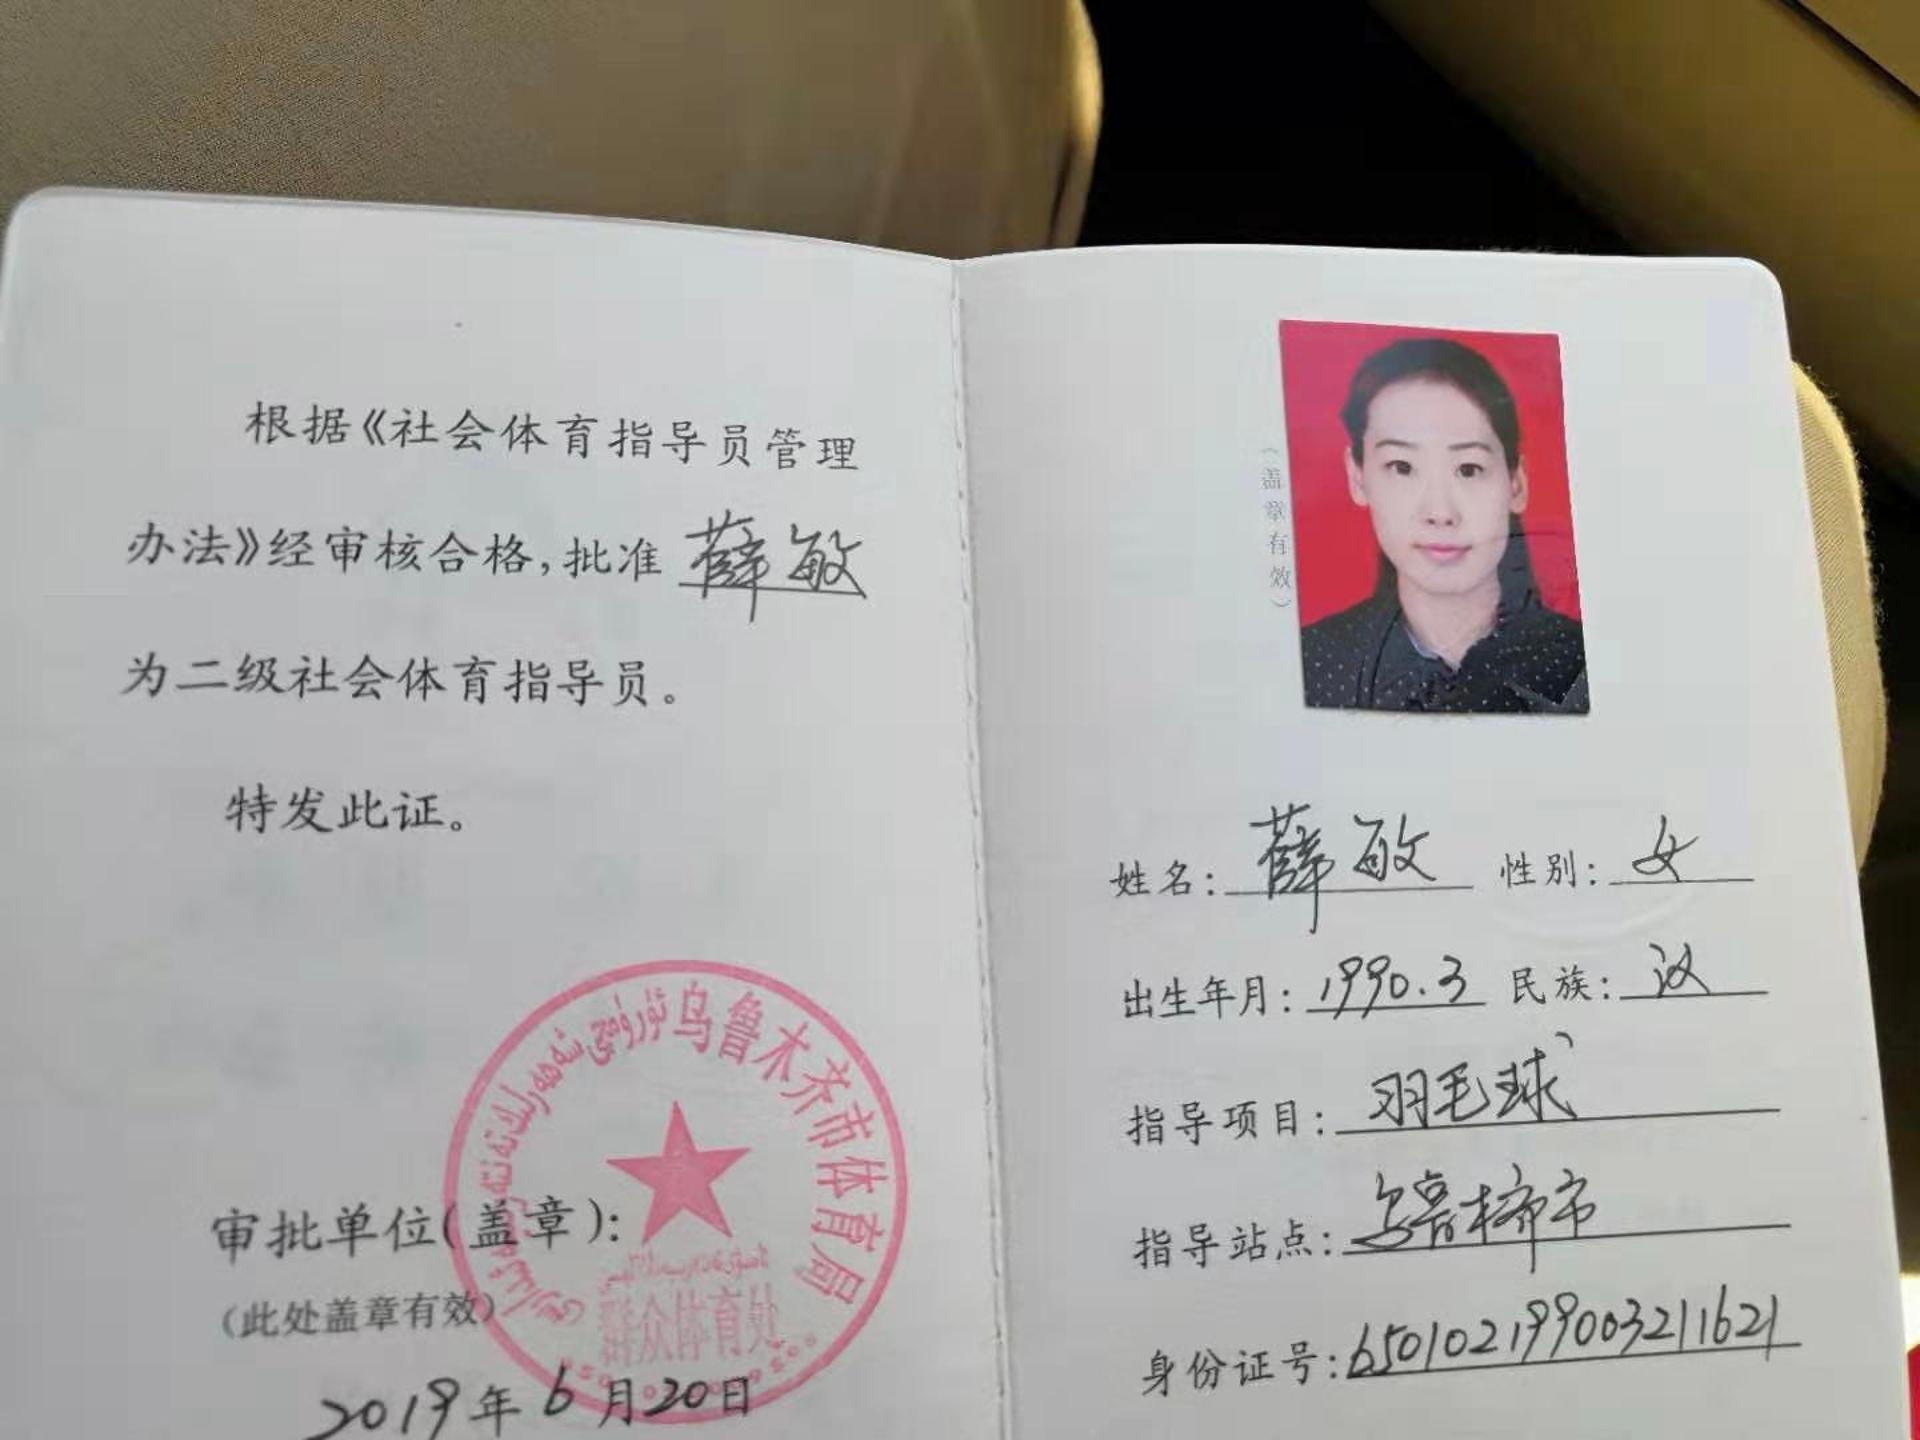 根据《社会体育指导员管理
办法》经审核合格,批准 薛敏
为二级社会体育指导员。
特发此证。
乌鲁木齐市体育局
群众体育处
审批单位(盖章):
(此处盖章有效)
2019年6月20日
(盖章有效)
姓名: 薛敏 性别: 女
出生年月: 1990.3 民族: 汉
指导项目: 羽毛球
指导站点: 乌鲁木齐市
身份证号: 650102199003211621